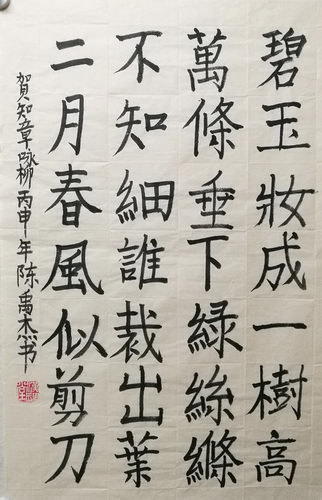 碧玉妝成一樹高
萬條垂下綠絲縧
不知細誰裁出葉
二月春風似剪刀
賀知章咏柳丙申年陈禹杰书